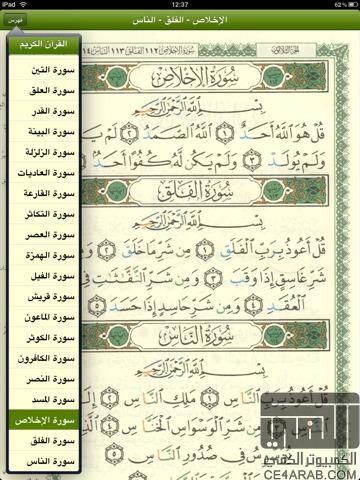 iPad
12:37
62 %
الإخلاص - الفلق - الناس
فهرس
القرآن الكريم
سورة التين
سورة العلق
سورة القدر
سورة البينة
سورة الزلزلة
سورة العاديات
سورة القارعة
سورة التكاثر
سورة العصر
سورة الهمزة
سورة الفيل
سورة قريش
سورة الماعون
سورة الكوثر
سورة الكافرون
سورة النصر
سورة المسد
سورة الإخلاص
سورة الفلق
سورة الناس
الجزء الثلاثون
سورة الإخلاص ١١٢ الفلق ١١٣ الناس ١١٤
سُورَةُ الإِخْلَاصِ
بِسْمِ اللَّهِ الرَّحْمَٰنِ الرَّحِيمِ
قُلْ هُوَ اللَّهُ أَحَدٌ ١ اللَّهُ الصَّمَدُ ٢ لَمْ يَلِدْ
وَلَمْ يُولَدْ ٣ وَلَمْ يَكُن لَّهُ كُفُوًا أَحَدٌ
سُورَةُ الفَلَقِ
بِسْمِ اللَّهِ الرَّحْمَٰنِ الرَّحِيمِ
قُلْ أَعُوذُ بِرَبِّ الْفَلَقِ ١ مِن شَرِّ مَا خَلَقَ ٢ وَمِن
شَرِّ غَاسِقٍ إِذَا وَقَبَ ٣ وَمِن شَرِّ النَّفَّاثَاتِ فِي
الْعُقَدِ ٤ وَمِن شَرِّ حَاسِدٍ إِذَا حَسَدَ ٥
سُورَةُ النَّاسِ
بِسْمِ اللَّهِ الرَّحْمَٰنِ الرَّحِيمِ
قُلْ أَعُوذُ بِرَبِّ النَّاسِ ١ مَلِكِ النَّاسِ ٢
النَّاسِ ٣ مِن شَرِّ الْوَسْوَاسِ الْخَنَّاسِ ٤
يُوَسْوِسُ فِي صُدُورِ النَّاسِ
الكمبيوتر الكفي
CE4ARAB.COM